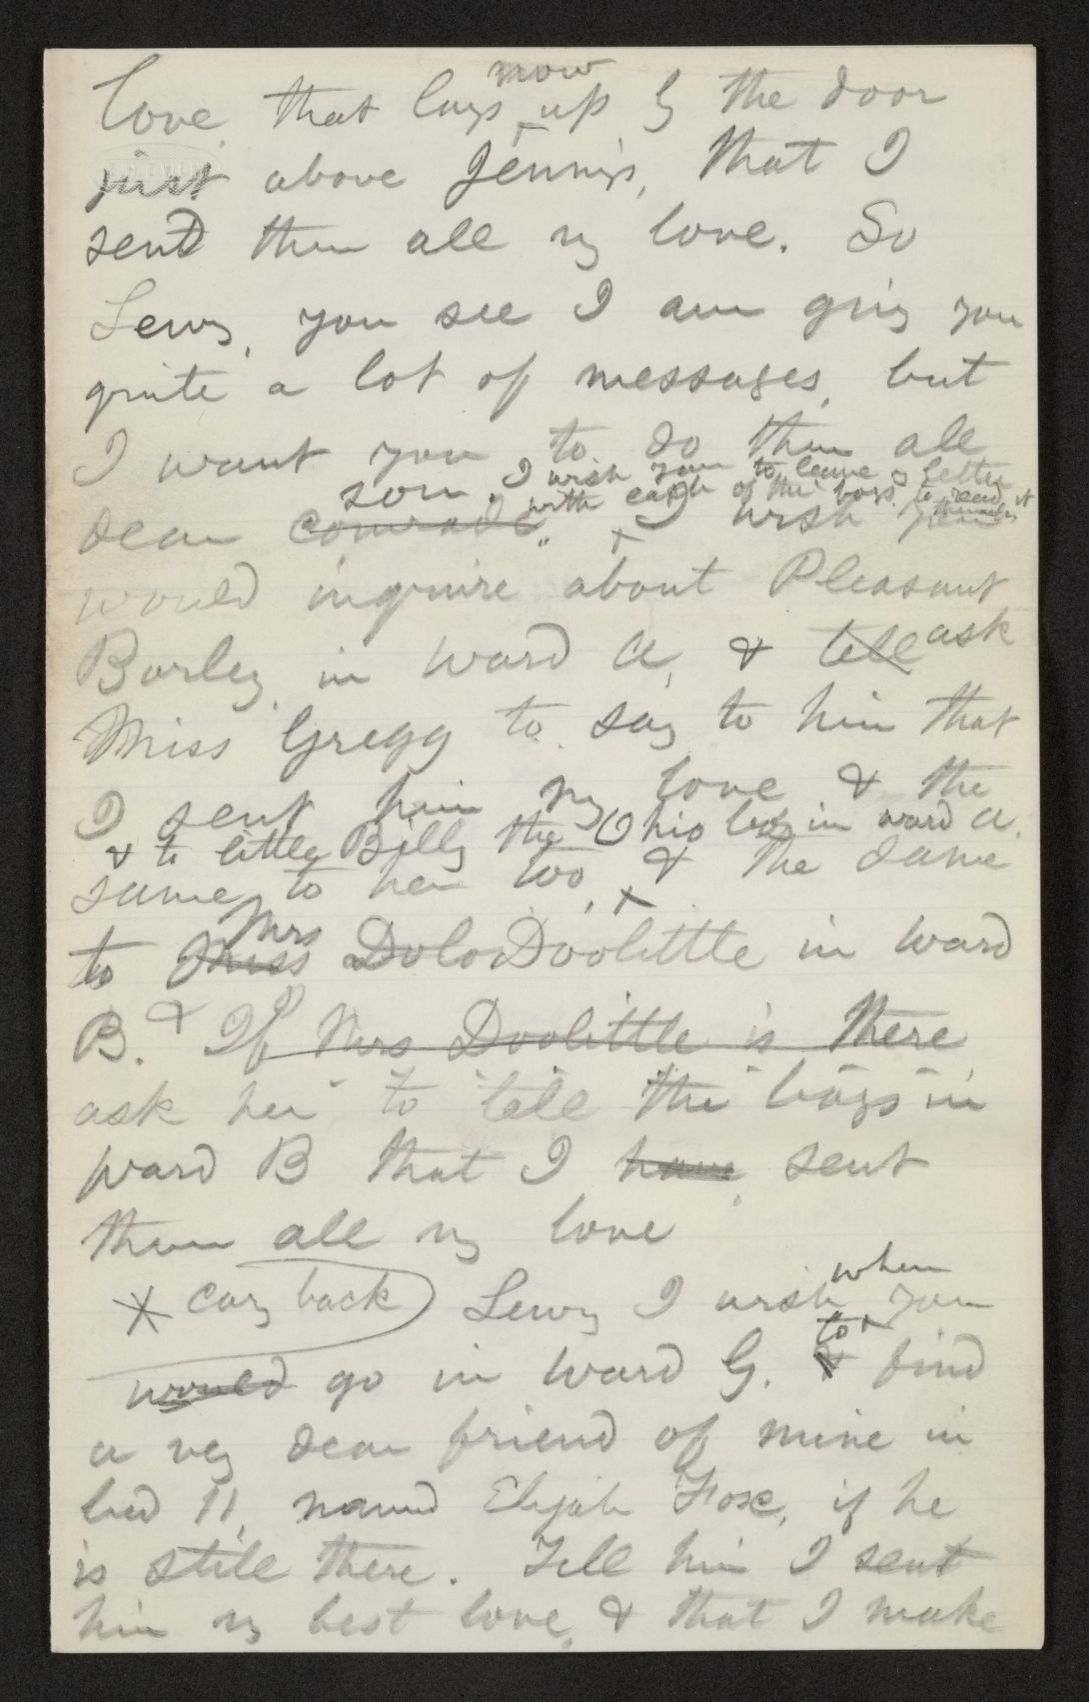 love that lays now up by the door
just above Jennings, that I
send them all my love. So
Lewy, you see I am giving you
quite a lot of messages, but
I want you to do them all
son. I wish you to leave my letter
with each of the boys to read it themselves
dear comrade. I wish you
would inquire about Pleasant
Borley, in ward A, & tell ask
Miss Gregg to say to him that
I sent him my love & the
& to little Billy the Ohio boy in ward A.
same to her too, & the same
Mrs
to Miss Dolo Doolittle in ward
B. & If Mrs Doolittle is there
ask her to tell the boys in
ward B that I have sent
them all my love
* carry back) Lewy I wish when you
to
would go in ward G. & find
a very dear friend of mine in
bed 11, named Elijah Fox, if he
is still there. Tell him I sent
him my best love, & that I make